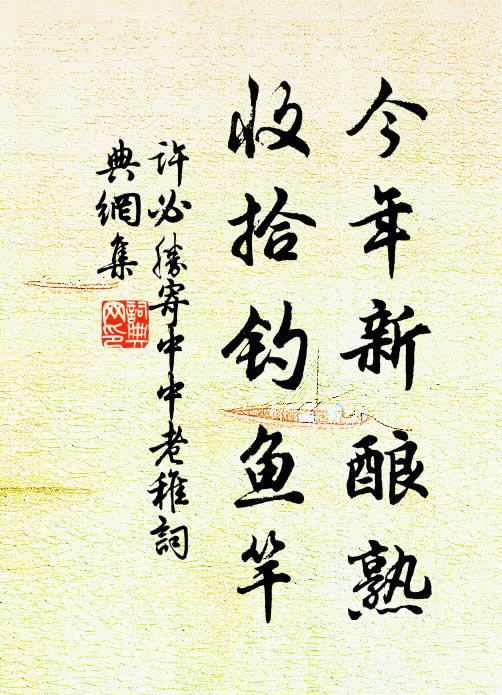 今年新酿熟
收拾钓鱼竿
許必勝寄中中老稚詞
典網集
詞典
网印